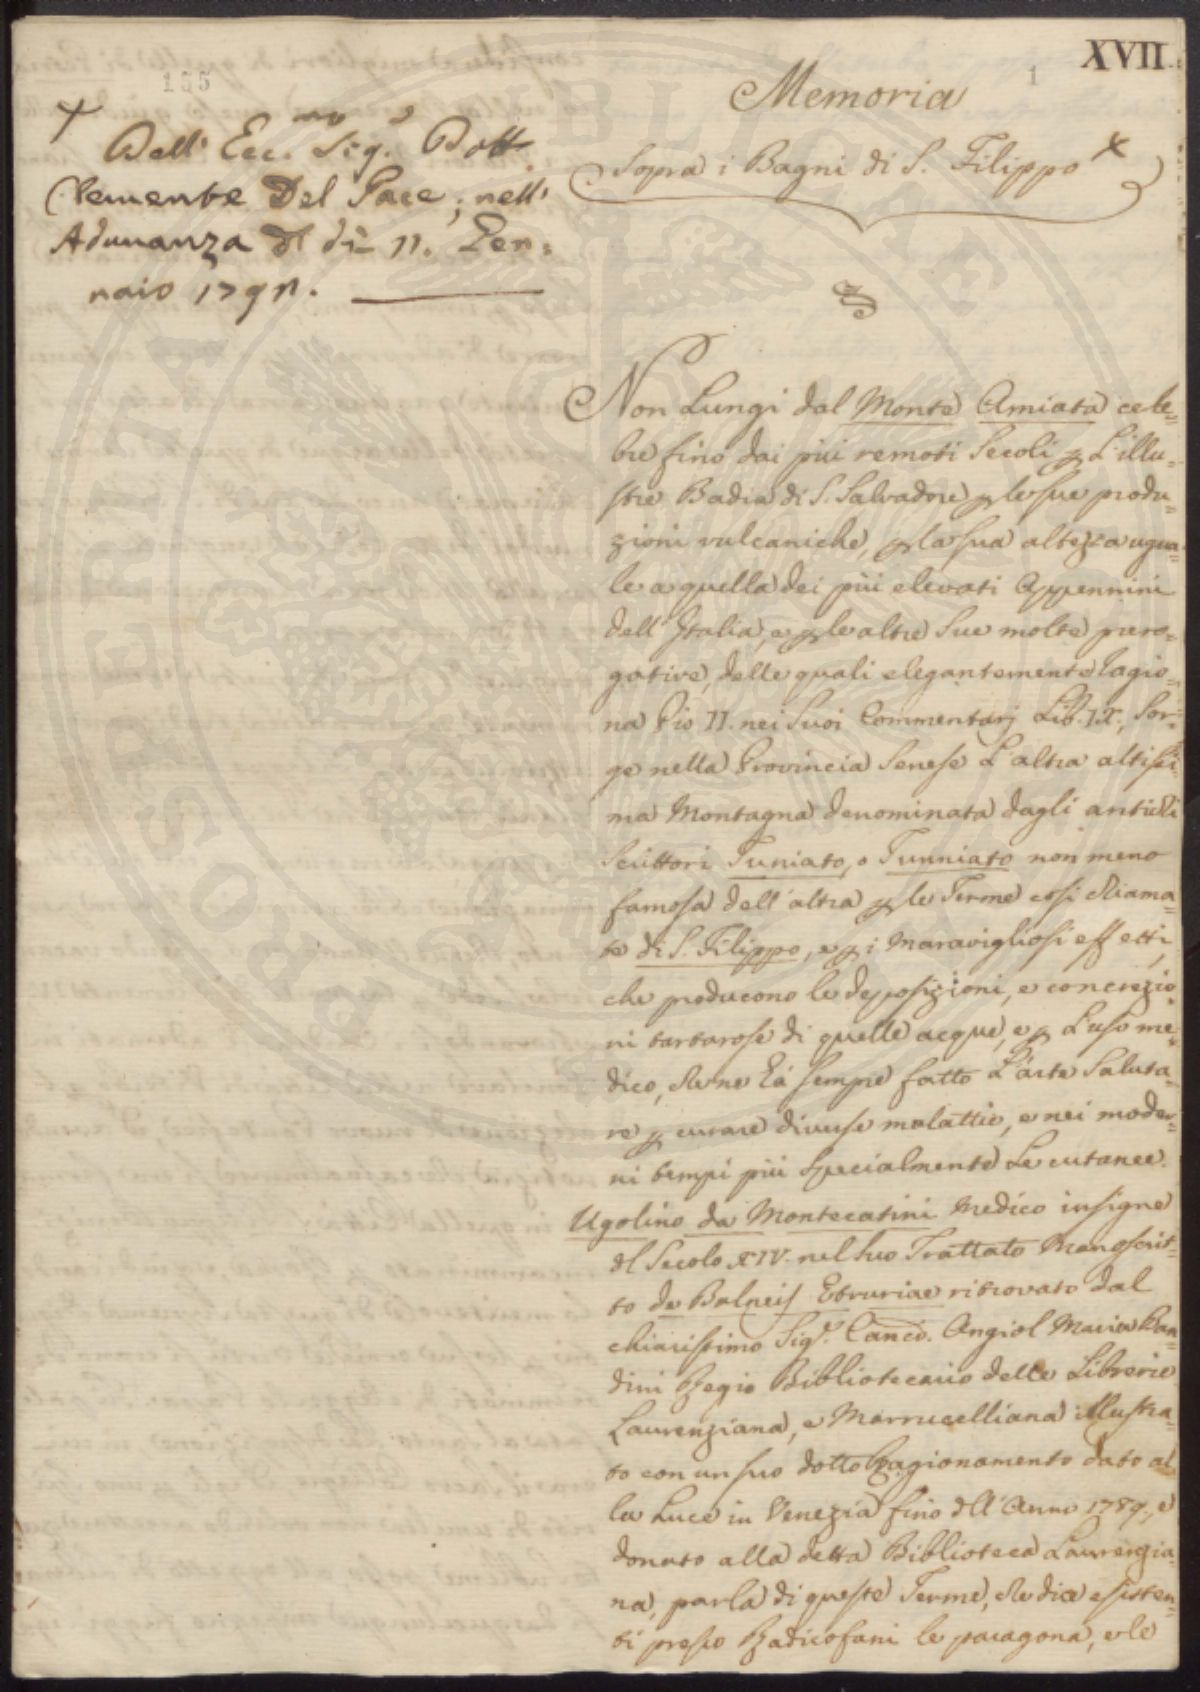 XVII.
155
1
Memoria
Sopra i Bagni di S. Filippo X
X
Dell' Ecc.mo Sig.r Dott.
Clemente Del Pace; nell'
Adunanza del dì 11. Gen=
naio 1791.
Non Lungi dal Monte Amiata cele=
bre fino dai più remoti Secoli p L'illu=
stre Badia di S. Salvadore, p le sue produ=
zioni vulcaniche, p la sua altezza ugua=
le a quella dei più elevati Appennini
dell' Italia, e p le altre Sue molte prero=
gative, delle quali elegantemente ragio=
na Pio II. nei Suoi Commentarj Lib. IX., Sor=
ge nella Provincia Senese L'altra altissi=
ma Montagna denominata dagli antichi
Scrittori Tuniato, o Tunniato non meno
famosa dell' altra p le Terme così chiama=
te di S. Filippo, e p i maravigliosi effetti,
che producono le deposizioni, e concrezio=
ni tartarose di quelle acque, e p L'uso me=
dico, che ne hà sempre fatto L'arte Saluta=
re p curare diverse malattie, e nei moder=
ni tempi più Specialmente Le cutanee.
Ugolino da Montecatini Medico insigne
del Secolo XIV. nel suo Trattato Manoscrit=
to de Balneis Etruriae ritrovato dal
chiarissimo Sig.r Canco. Angiol Maria Ban=
dini Regio Bibliotecario delle Librerie
Laurenziana, e Marrucelliana illustra=
to con un suo dotto Ragionamento dato al
la Luce in Venezia fino dell' Anno 1789., e
donato alla detta Biblioteca Laurenzia=
na, parla di queste Terme, che dice esisten=
ti presso Radicofani le paragona, e le
PROSPERITAS PUBLICAE